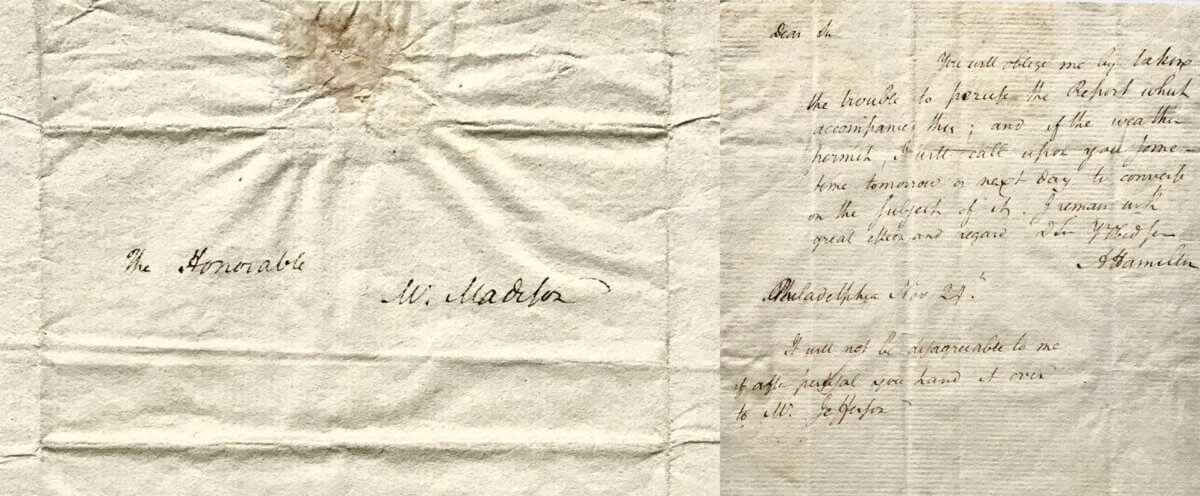 The Honorable
Mr. Madison
Dear Sir
You will oblige me by taking
the trouble to peruse the Report which
accompanies this; and if the weather
permit, I will call upon you some-
time tomorrow or next day to converse
on the subject of it. I remain with
great esteem and regard D Sir Yr Obed ser
A Hamilton
Philadelphia Nov 24th
It will not be disagreeable to me
if after perusal you hand it over
to Mr. Jefferson